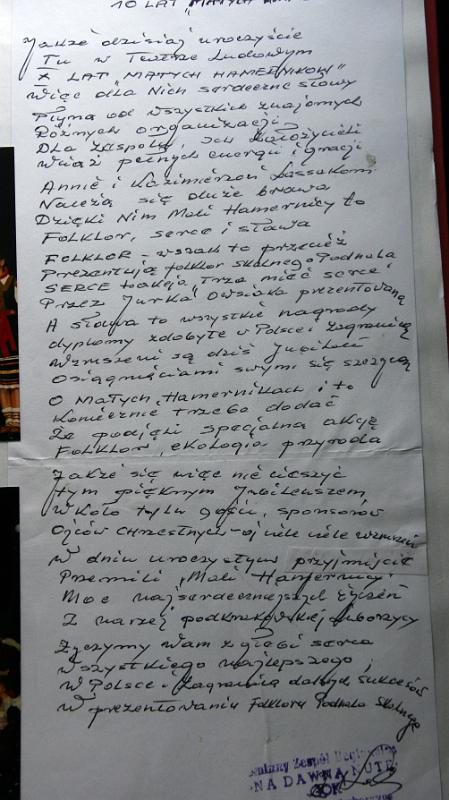 10 LAT "MAŁYCH
Jakże dzisiaj uroczyście
Tu w Teatrze Ludowym
X LAT „MAŁYCH HAMERNIKÓW"
Więc dla Nich serdeczne słowy
Płyną od wszystkich znajomych
Różnych organizacji
Dla Zespołu, Ich Założycieli
Wciąż pełnych energii i gracji
Annie i Kazimierzowi Lassakom
Należą się duże brawa
Dzięki Nim Mali Hamernicy to
Folklor, serce i sława
FOLKLOR - wszak to przecież
Prezentują folklor Skalnego Podhala
SERCE to akcja „Trza mieć serce"
Przez Jurka Owsiaka prezentowaną
A Sława to wszystkie nagrody
dyplomy zdobyte w Polsce i zagranicą
Wzruszeni są dziś Jubilaci
Osiągnięciami swymi się szczycą
O Małych „Hamernikach i to
Koniecznie trzeba dodać
Że podjęli specjalną akcję
Folklor, ekologia przyroda
Jakże się więc nie cieszyć
tym pięknym Jubileuszem,
W koło tylu gości, sponsorów
Ojców chrzestnych - oj wiele wiele wzruszeń
W dniu uroczystym przyjmijcie
Przemili „Mali Hamernicy"
Moc najserdeczniejszych życzeń
Z naszej podkrakowskiej Luborzycy
Życzymy Wam z głębi serca
Wszystkiego najlepszego,
W Polsce i Zagranicą dalszych sukcesów
W prezentowaniu Folkloru Podhala Skalnego
Zespół
NA DAWNĄ NUTĘ
GOK